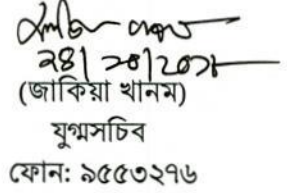 ২৪/১০/২০২১
(জাকিয়া খানম)
যুগ্মসচিব
ফোন: ৯৫৫৩২৭৬